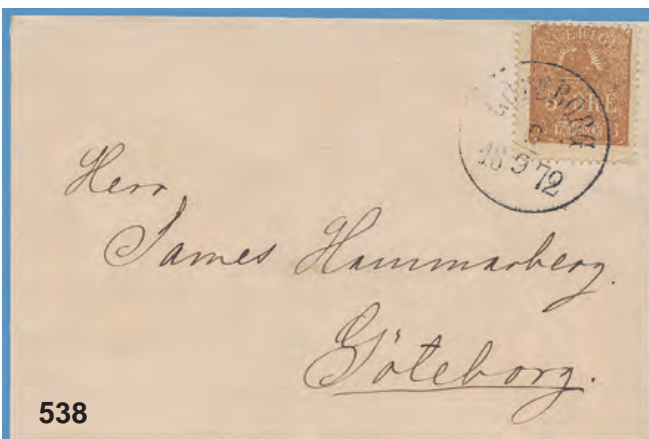 SVERIGE
3 ÖRE
GÖTEBORG
18 9 72
Herr
James Hammarberg.
Göteborg.
538